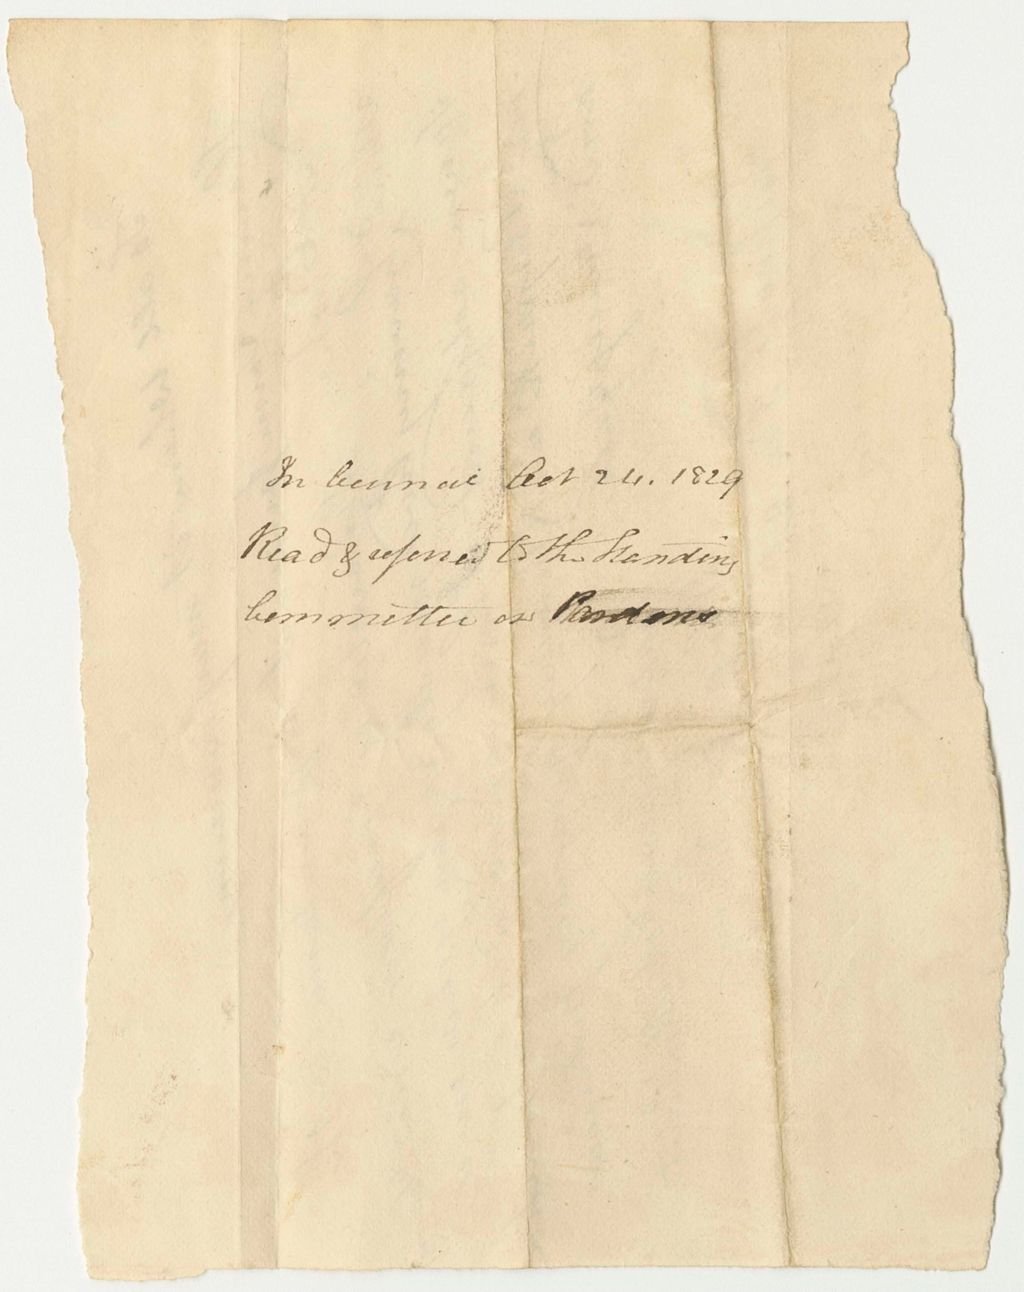 In Council Oct 24. 1829
Read & referred to the Standing
Committee on Pardons